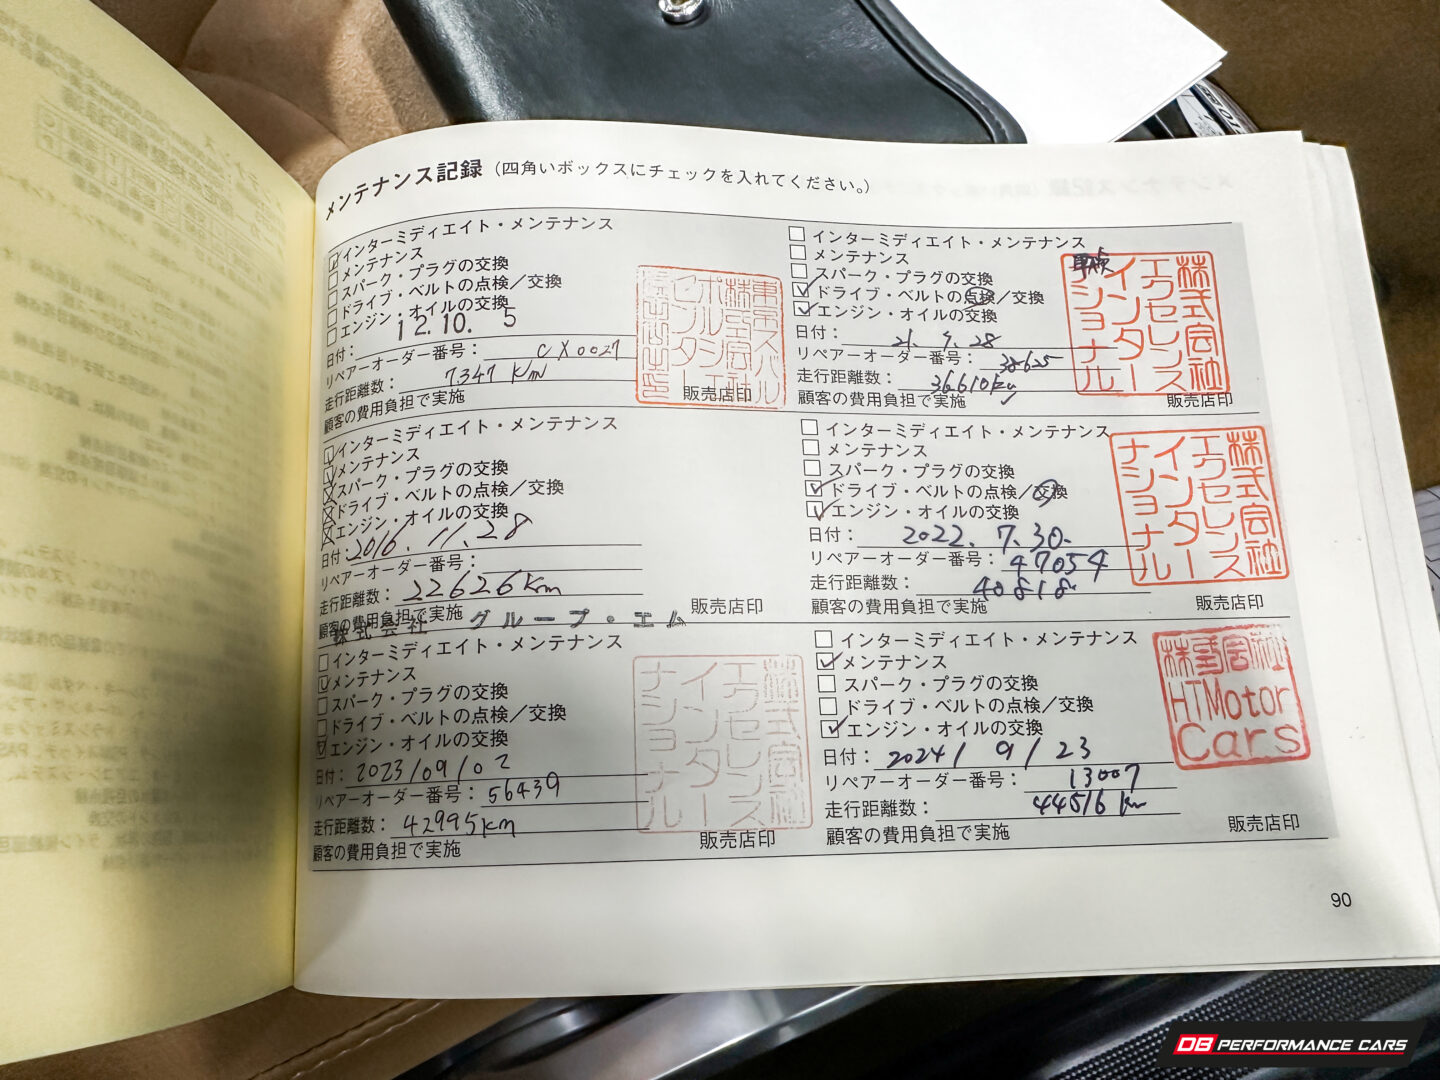 メンテナンス記録（四角いボックスにチェックを入れてください。）
インターミディエイト・メンテナンス
メンテナンス
スパーク・プラグの交換
ドライブ・ベルトの点検／交換
エンジン・オイルの交換
日付： 12.10. 5
リペアーオーダー番号： CX0027
走行距離数： 7347 Km
顧客の費用負担で実施
販売店印
インターミディエイト・メンテナンス
メンテナンス
スパーク・プラグの交換
ドライブ・ベルトの点検／交換
エンジン・オイルの交換
日付：2016.11.28
リペアーオーダー番号：
走行距離数： 22626Km
顧客の費用負担で実施
販売店印
株式会社 グループ・エム
インターミディエイト・メンテナンス
メンテナンス
スパーク・プラグの交換
ドライブ・ベルトの点検／交換
エンジン・オイルの交換
日付： 2023/09/02
リペアーオーダー番号： 56439
走行距離数： 42995km
顧客の費用負担で実施
販売店印
株式会社
エクセレンス
インター
ナショナル
インターミディエイト・メンテナンス
メンテナンス
スパーク・プラグの交換
ドライブ・ベルトの点検／交換
エンジン・オイルの交換
日付：
リペアーオーダー番号： 38625
走行距離数： 36610km
顧客の費用負担で実施
販売店印
車検
株式会社
エクセレンス
インター
ナショナル
インターミディエイト・メンテナンス
メンテナンス
スパーク・プラグの交換
ドライブ・ベルトの点検／交換
エンジン・オイルの交換
日付： 2022. 7. 30.
リペアーオーダー番号： 47054
走行距離数：
顧客の費用負担で実施
販売店印
株式会社
エクセレンス
インター
ナショナル
インターミディエイト・メンテナンス
メンテナンス
スパーク・プラグの交換
ドライブ・ベルトの点検／交換
エンジン・オイルの交換
日付： 2024/ 9/ 23
リペアーオーダー番号： 13007
走行距離数： 44516 km
顧客の費用負担で実施
販売店印
株式会社
HTMotor
Cars
90
DB PERFORMANCE CARS